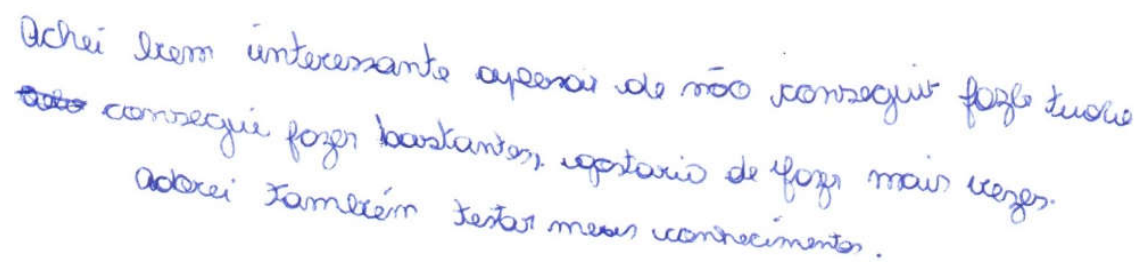 Achei bem interessante apesar de não conseguir fazer tudo
consegui fazer bastantes, gostaria de fazer mais vezes.
Adorei também testar meus conhecimentos.